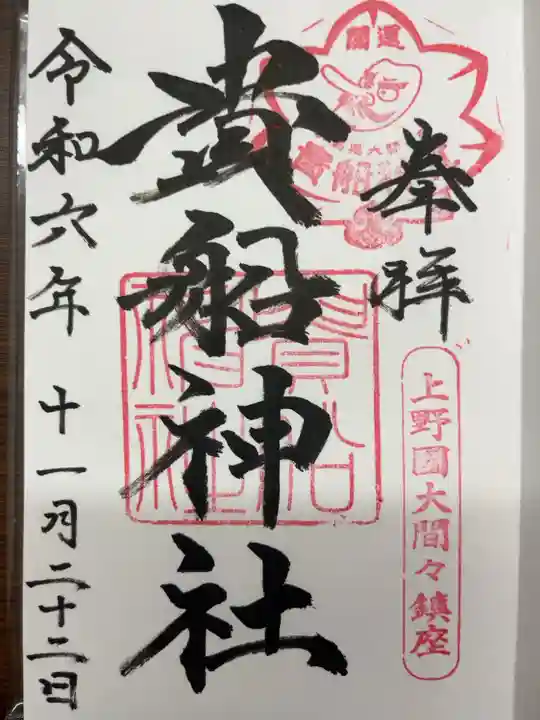 奉拝
開運
上野國大間々鎮座
貴船神社
貴船神社
令和六年 十一月二十二日